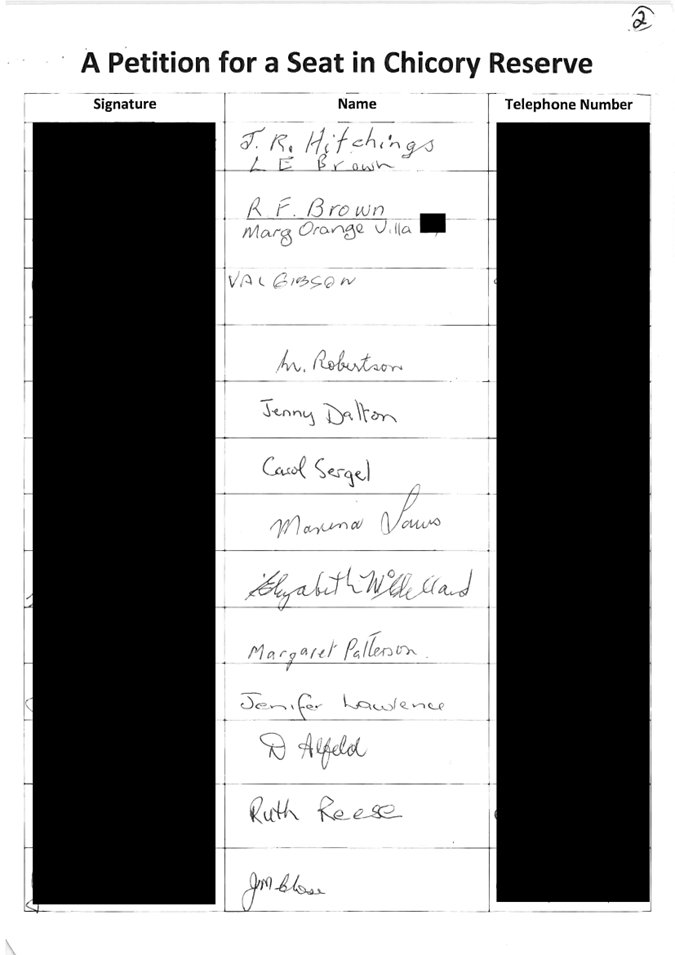 2
A Petition for a Seat in Chicory Reserve
Signature Name Telephone Number
J. R. Hitchings
L E Brown
R F. Brown
Marg Orange Villa
VAL GIBSON
M. Robertson
Jenny Dalton
Carol Sergel
Elizabeth
Margaret Patterson.
Jenifer Lawrence
D Alfeld
Ruth Reese